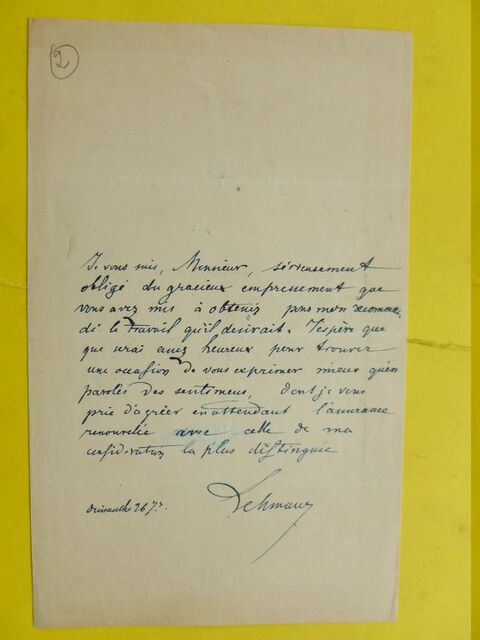 2
Je vous suis, Monsieur, sérieusement
obligé du gracieux empressement que
vous avez mis à obtenir pour mon recomman-
dé le travail qu'il désirait. J'espère que
que serai assez heureux pour trouver
une occasion de vous exprimer mieux qu'en
paroles des sentimens, dont je vous
prie d'agréer en attendant l'assurance
renouvelée avec celle de ma
considération la plus distinguée
26 7re
Lehmann